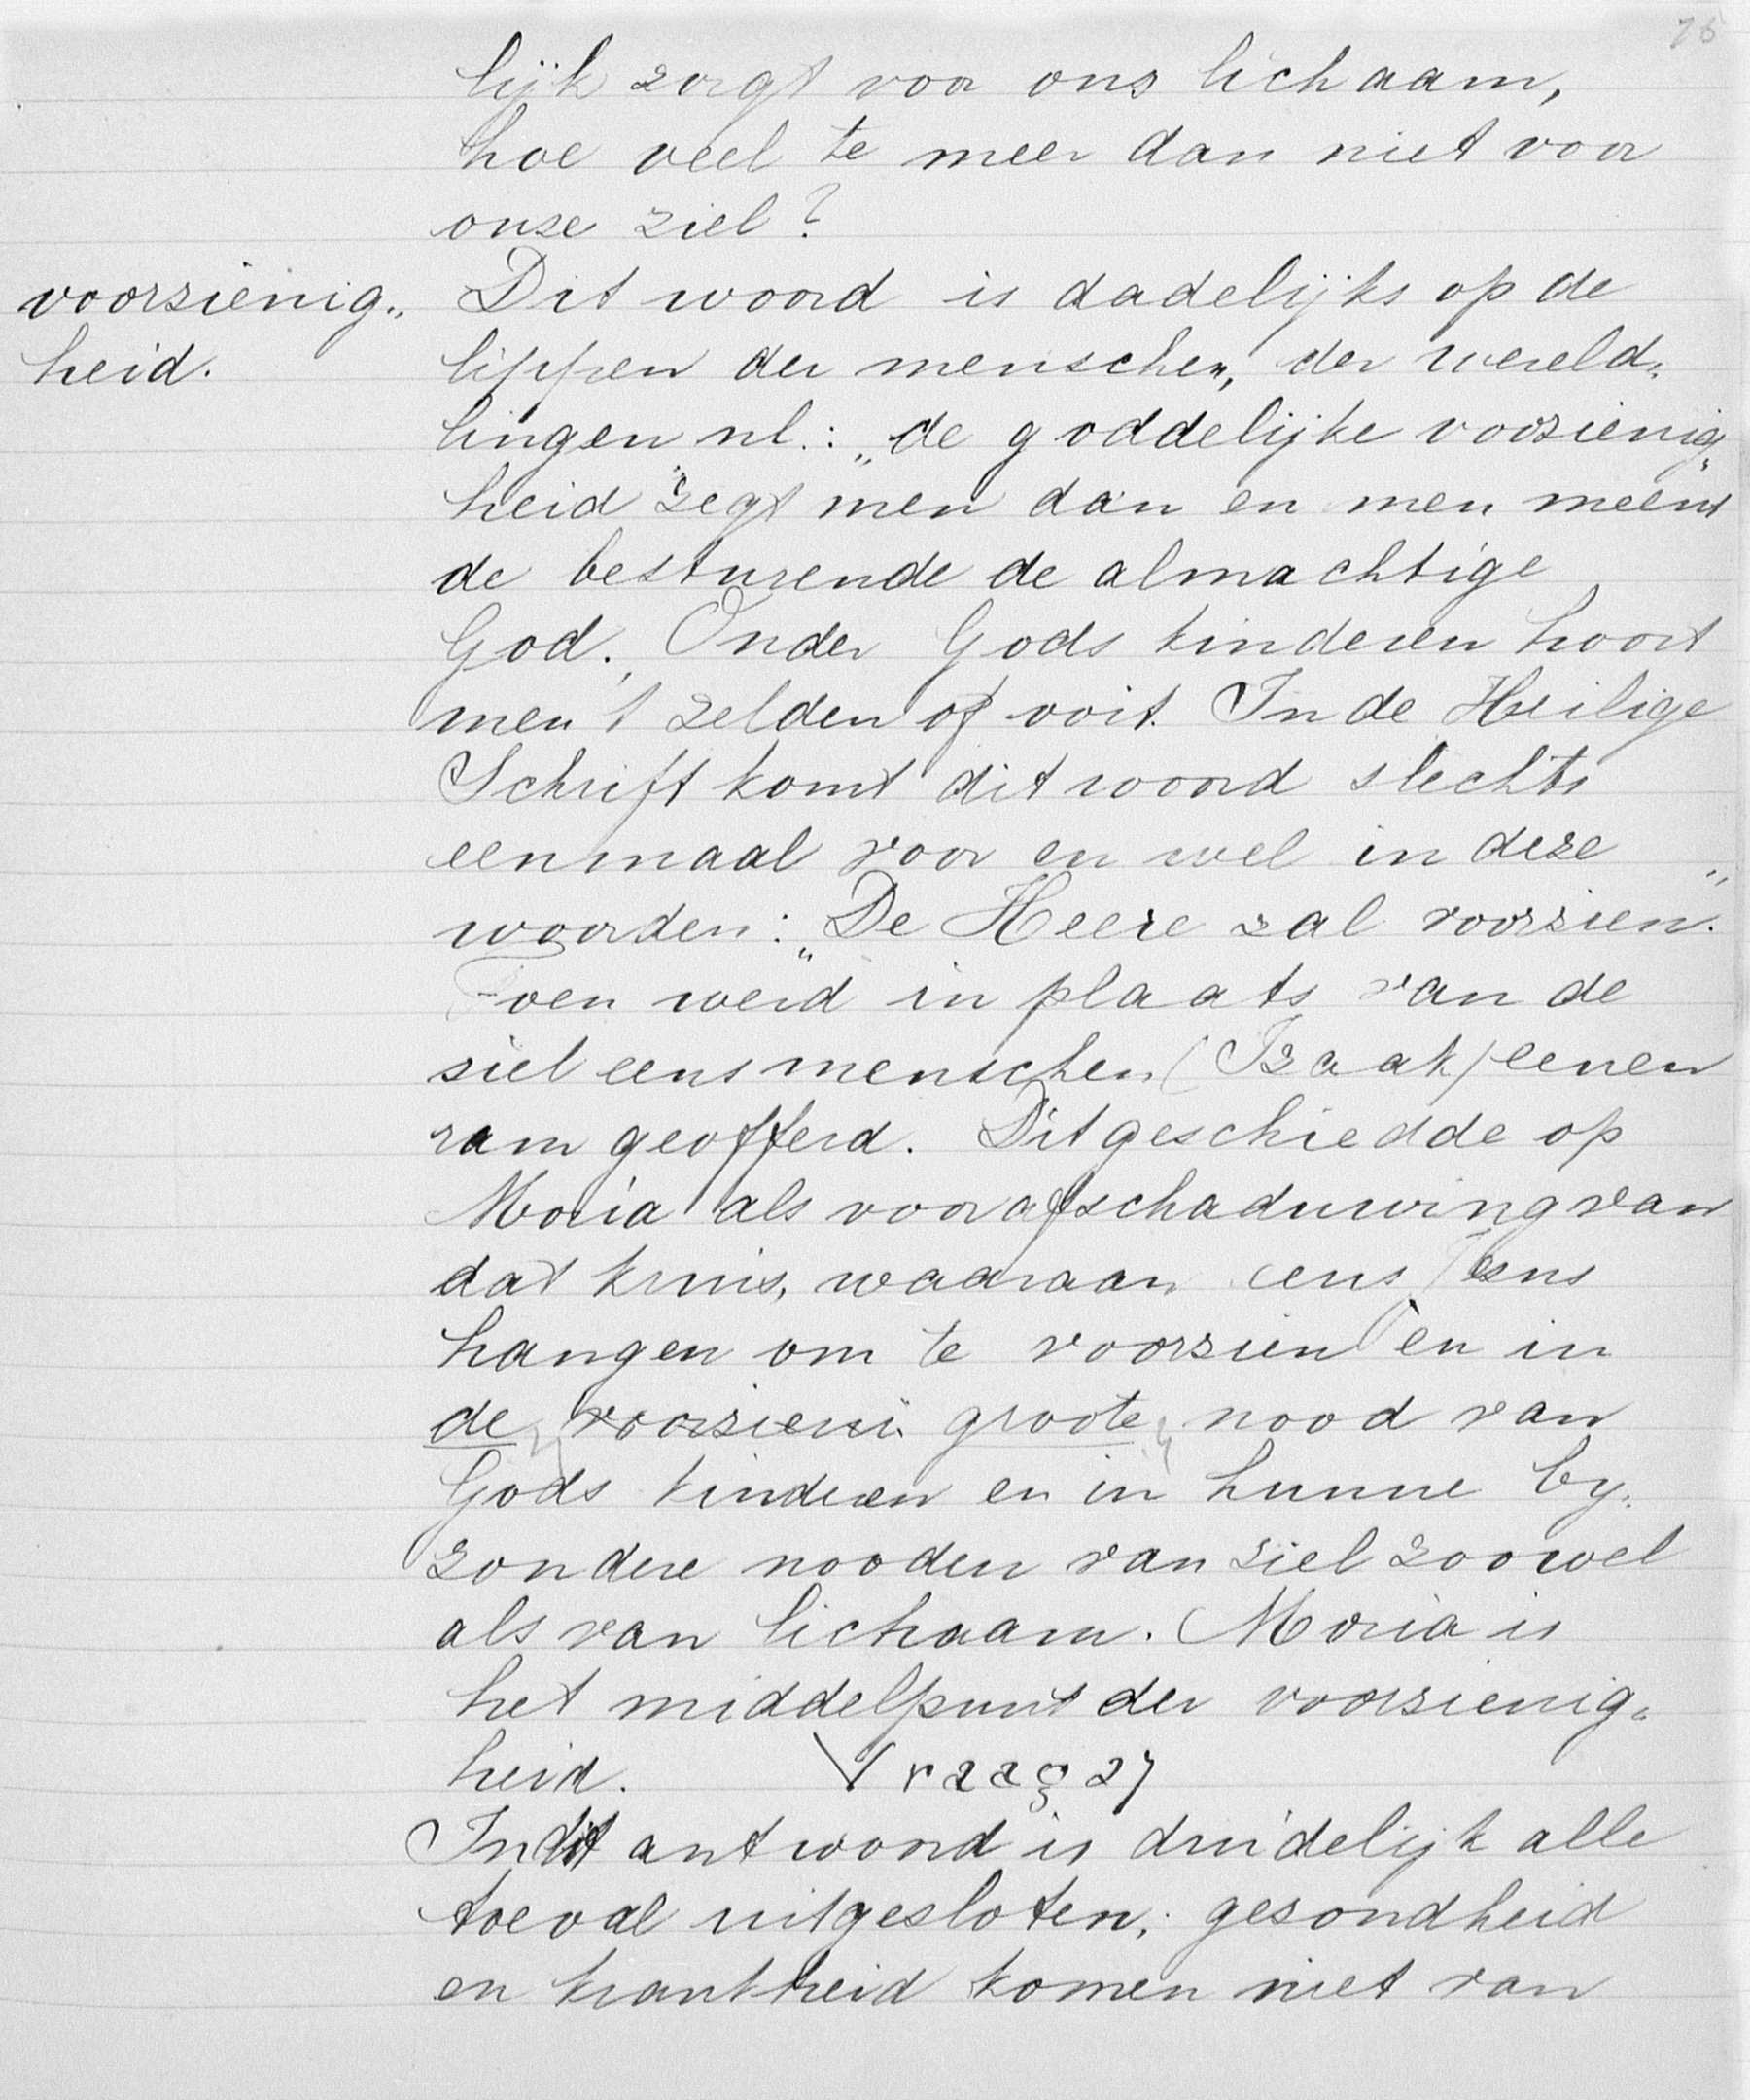 76
lijk zorgt voor ons lichaam,
hoe veel te meer dan niet voor
onze ziel?
voorzienig„ Dit woord is dadelijks op de
heid. lippen der menschen, der wereld„
lingen nl.: „de goddelijke voorzienig„
heid" zegt men dan en men meent
de besturende de almachtige
God. Onder Gods kinderen hoort
men 't zelden of ooit. In de Heilige
Schrift komt dit woord slechts
eenmaal voor en wel in deze
woorden: „De Heere zal voorzien."
Toen werd in plaats van de
ziel eens menschen (Izaak) eenen
ram geofferd. Dit geschiedde op
Moria als voorafschaduwing van
dat kruis, waaraan eens Jesus
hangen om te voorzien en in
de voorzieni groote nood van
Gods kinderen en in hunne by„
zondere nooden van ziel zoowel
als van lichaam. Moria is
het middelpunt der voorzienig„
heid. Vraag 27
In dit antwoord is duidelijk alle
toeval uitgesloten; gezondheid
en krankheid komen niet van